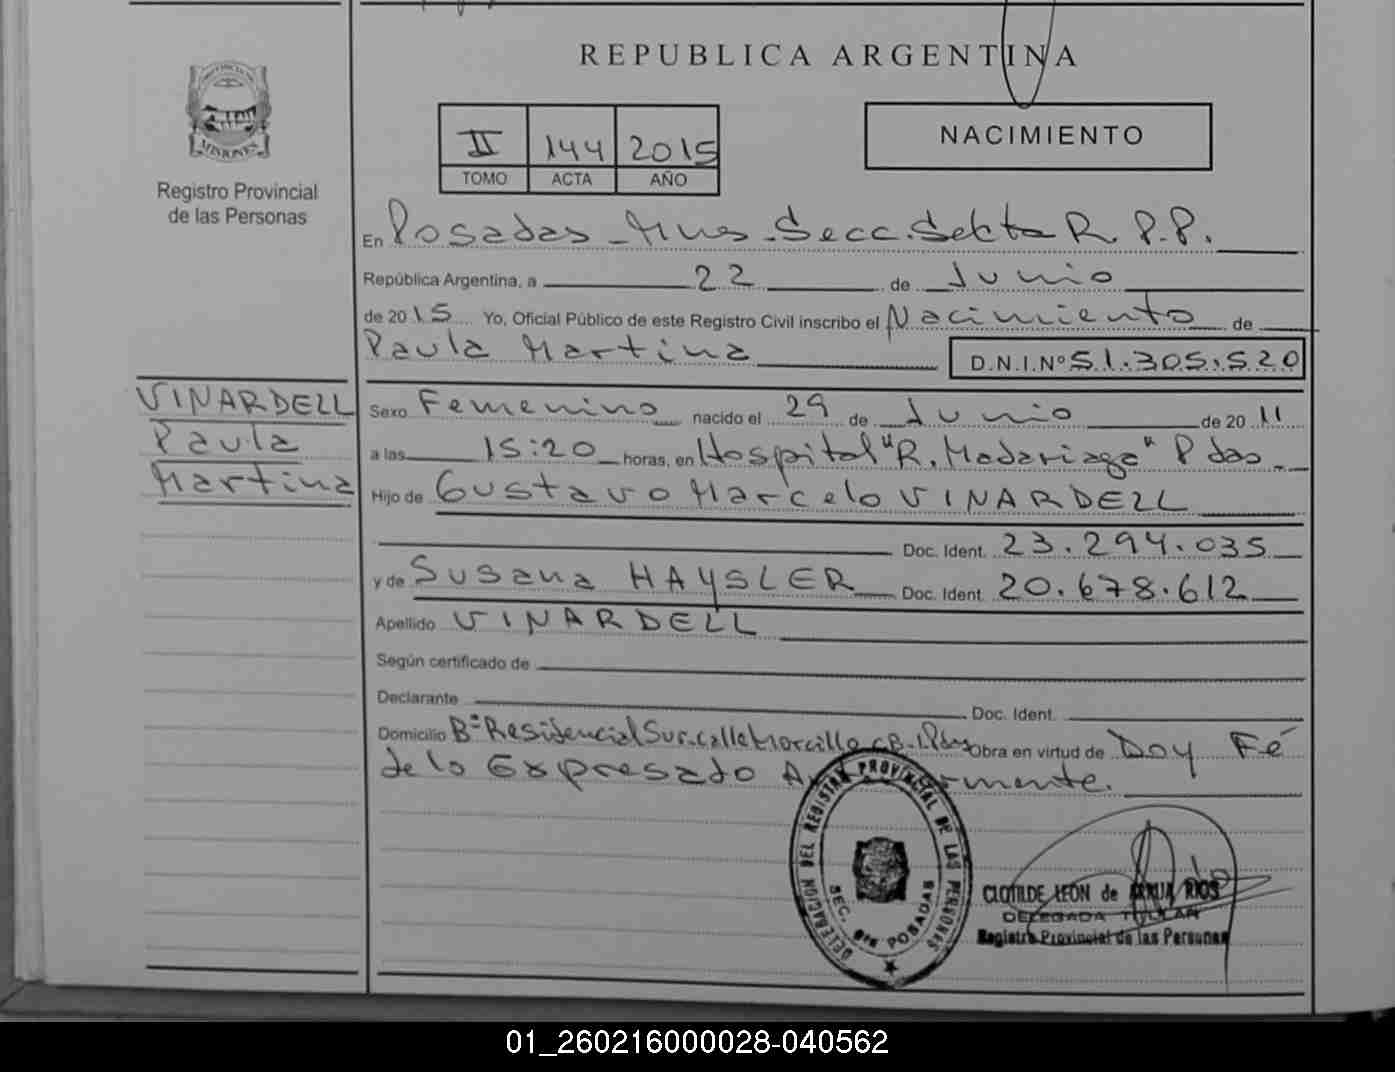 REPUBLICA ARGENTINA
PROVINCIA DE
MISIONES
Registro Provincial
de las Personas
II 144 2015
TOMO ACTA AÑO
NACIMIENTO
En Posadas - Mnes. Secc. Sexta R. P. P.
República Argentina, a 22 de Junio
de 2015 Yo, Oficial Público de este Registro Civil inscribo el Nacimiento de
Paula Martina D.N.I.Nº 51.305.520
VINARDELL
Paula
Martina
Sexo Femenino nacido el 29 de Junio de 2011
a las 15:20 horas, en Hospital "R. Madariaga" Pdas.
Hijo de Gustavo Marcelo VINARDELL
Doc. Ident. 23.294.035
y de Susana HAYSLER Doc. Ident. 20.678.612
Apellido VINARDELL
Según certificado de
Declarante Doc. Ident.
Domicilio Bº Residencial Sur. Calle Morcillo Obra en virtud de Doy Fé
de lo Expresado
DELEGACION DEL REGISTRO PROVINCIAL DE LAS PERSONAS
SEC. 6ta POSADAS
CLOTILDE LEÓN de RIOS
DELEGADA TITULAR
Registro Provincial de las Personas
01_260216000028-040562